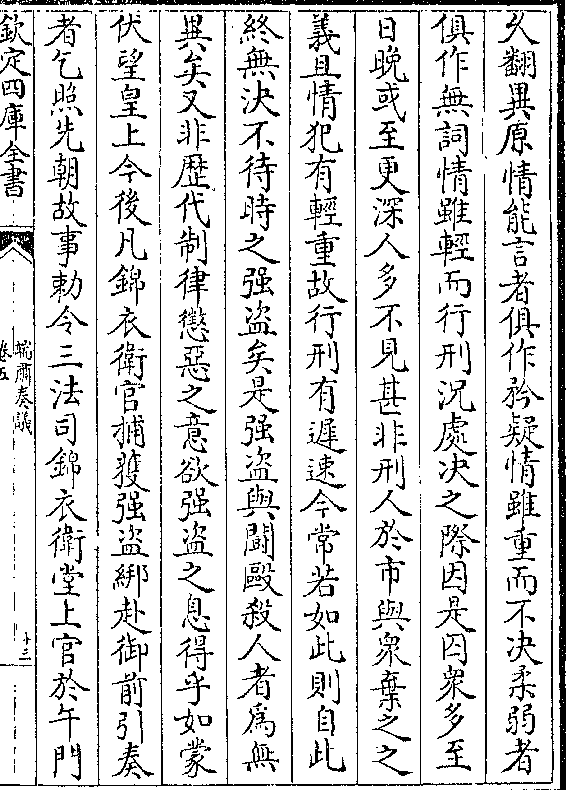 久翻異原情能言者俱作矜疑情雖重而不决柔弱者
俱作無詞情雖輕而行刑况處决之際因是囚衆多至
日晚或至更深人多不見甚非刑人於市與衆棄之之
義且情犯有輕重故行刑有遲速今常若如此則自此
終無决不待時之强盗矣是强盗與鬭毆殺人者為無
異矣又非歴代制律懲惡之意欲强盗之息得乎如蒙
伏望皇上今後凡錦衣衛官捕獲强盗綁赴御前引奏
者乞照先朝故事勅令三法司錦衣衛堂上官於午門
欽定四庫全書
端肅奏議
卷五
十三